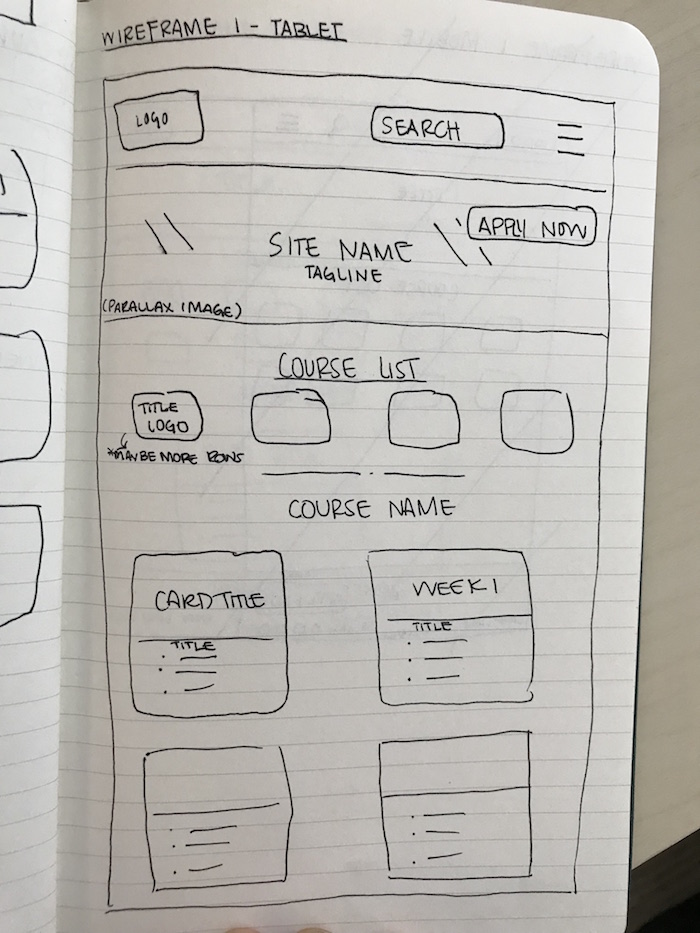 WIREFRAME 1 - TABLET
LOGO
SEARCH
APPLY NOW
SITE NAME
TAGLINE
(PARALLAX IMAGE)
COURSE LIST
TITLE
LOGO
*MAYBE MORE ROWS
COURSE NAME
CARD TITLE
TITLE
WEEK 1
TITLE